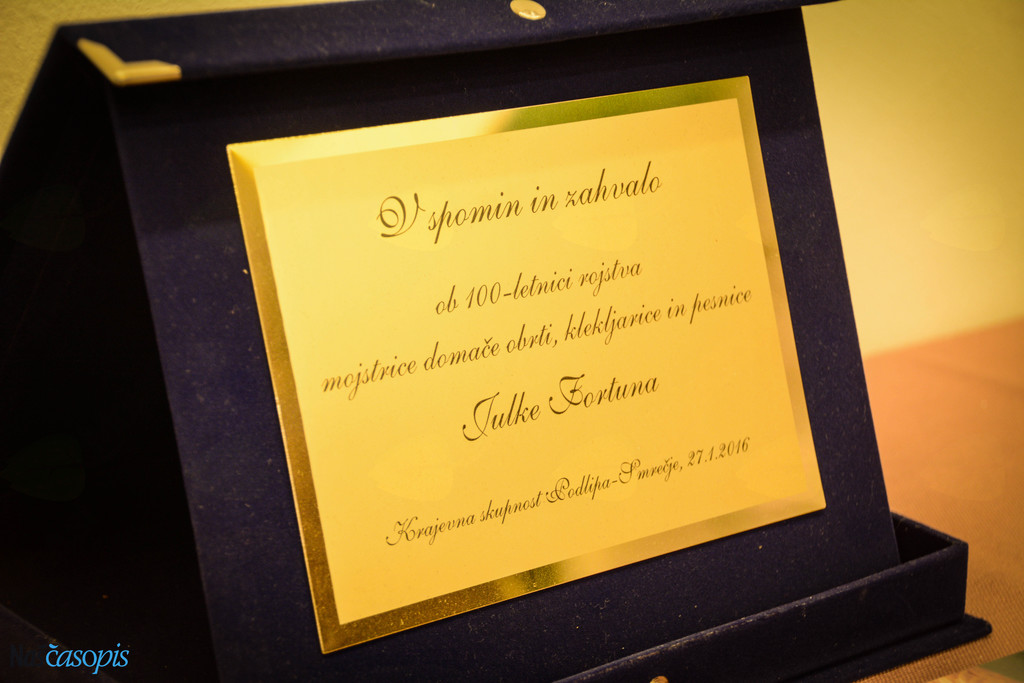 V spomin in zahvalo
ob 100-letnici rojstva
mojstrice domače obrti, klekljarice in pesnice
Julke Fortuna
Krajevna skupnost Podlipa-Smrečje, 27.1.2016
Naš časopis